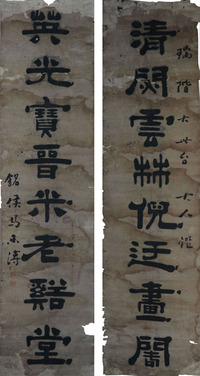 清閟雲林倪迂畫閣
瑞階大世台大人鑑
英光寶晉米老谿堂
銘侯馬